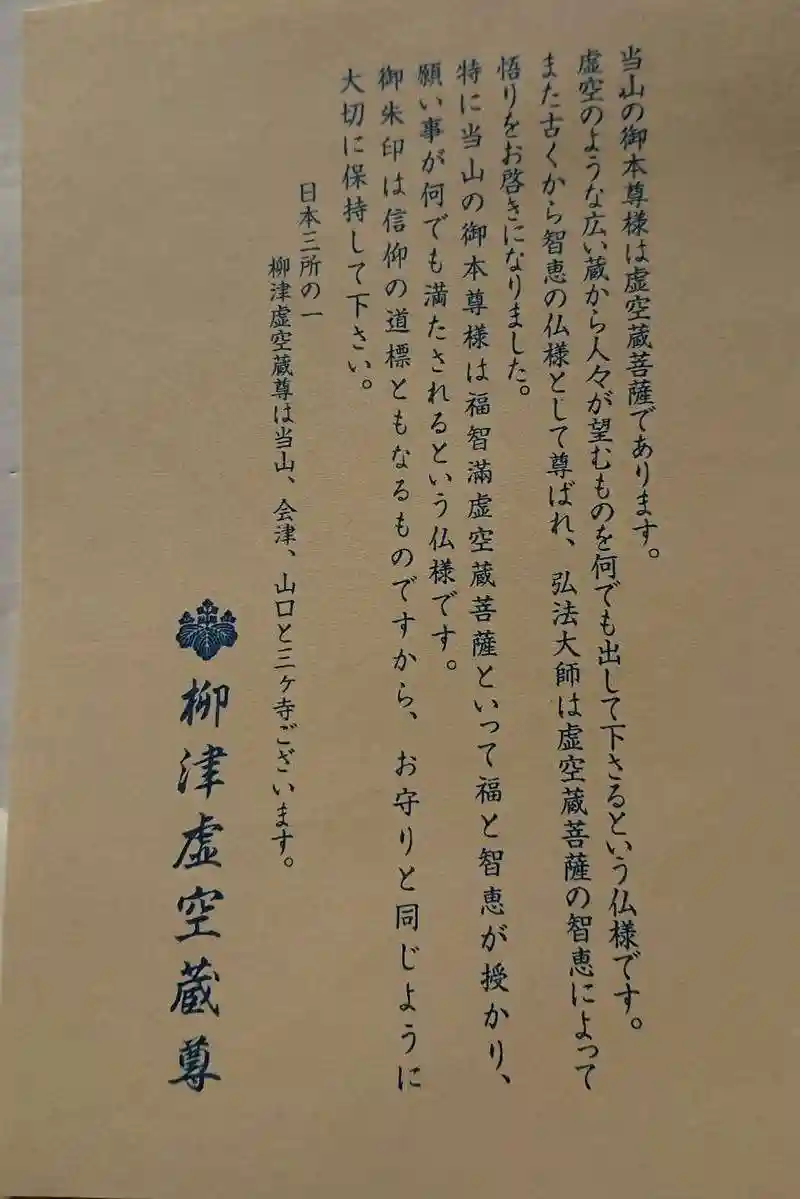 当山の御本尊様は虚空蔵菩薩であります。
虚空のような広い蔵から人々が望むものを何でも出して下さるという仏様です。
また古くから智恵の仏様として尊ばれ、弘法大師は虚空蔵菩薩の智恵によって
悟りをお啓きになりました。
特に当山の御本尊様は福智滿虚空蔵菩薩といって福と智恵が授かり、
願い事が何でも満たされるという仏様です。
御朱印は信仰の道標ともなるものですから、お守りと同じように
大切に保持して下さい。
日本三所の一
柳津虚空蔵尊は当山、会津、山口と三ヶ寺ございます。
柳津虚空蔵尊